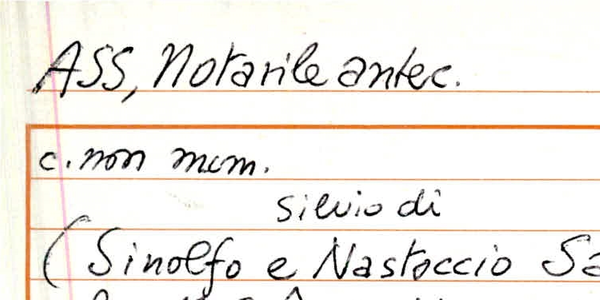 ASS, Notarile antec.
c. non num.
silvio di
( Sinolfo e Nastoccio